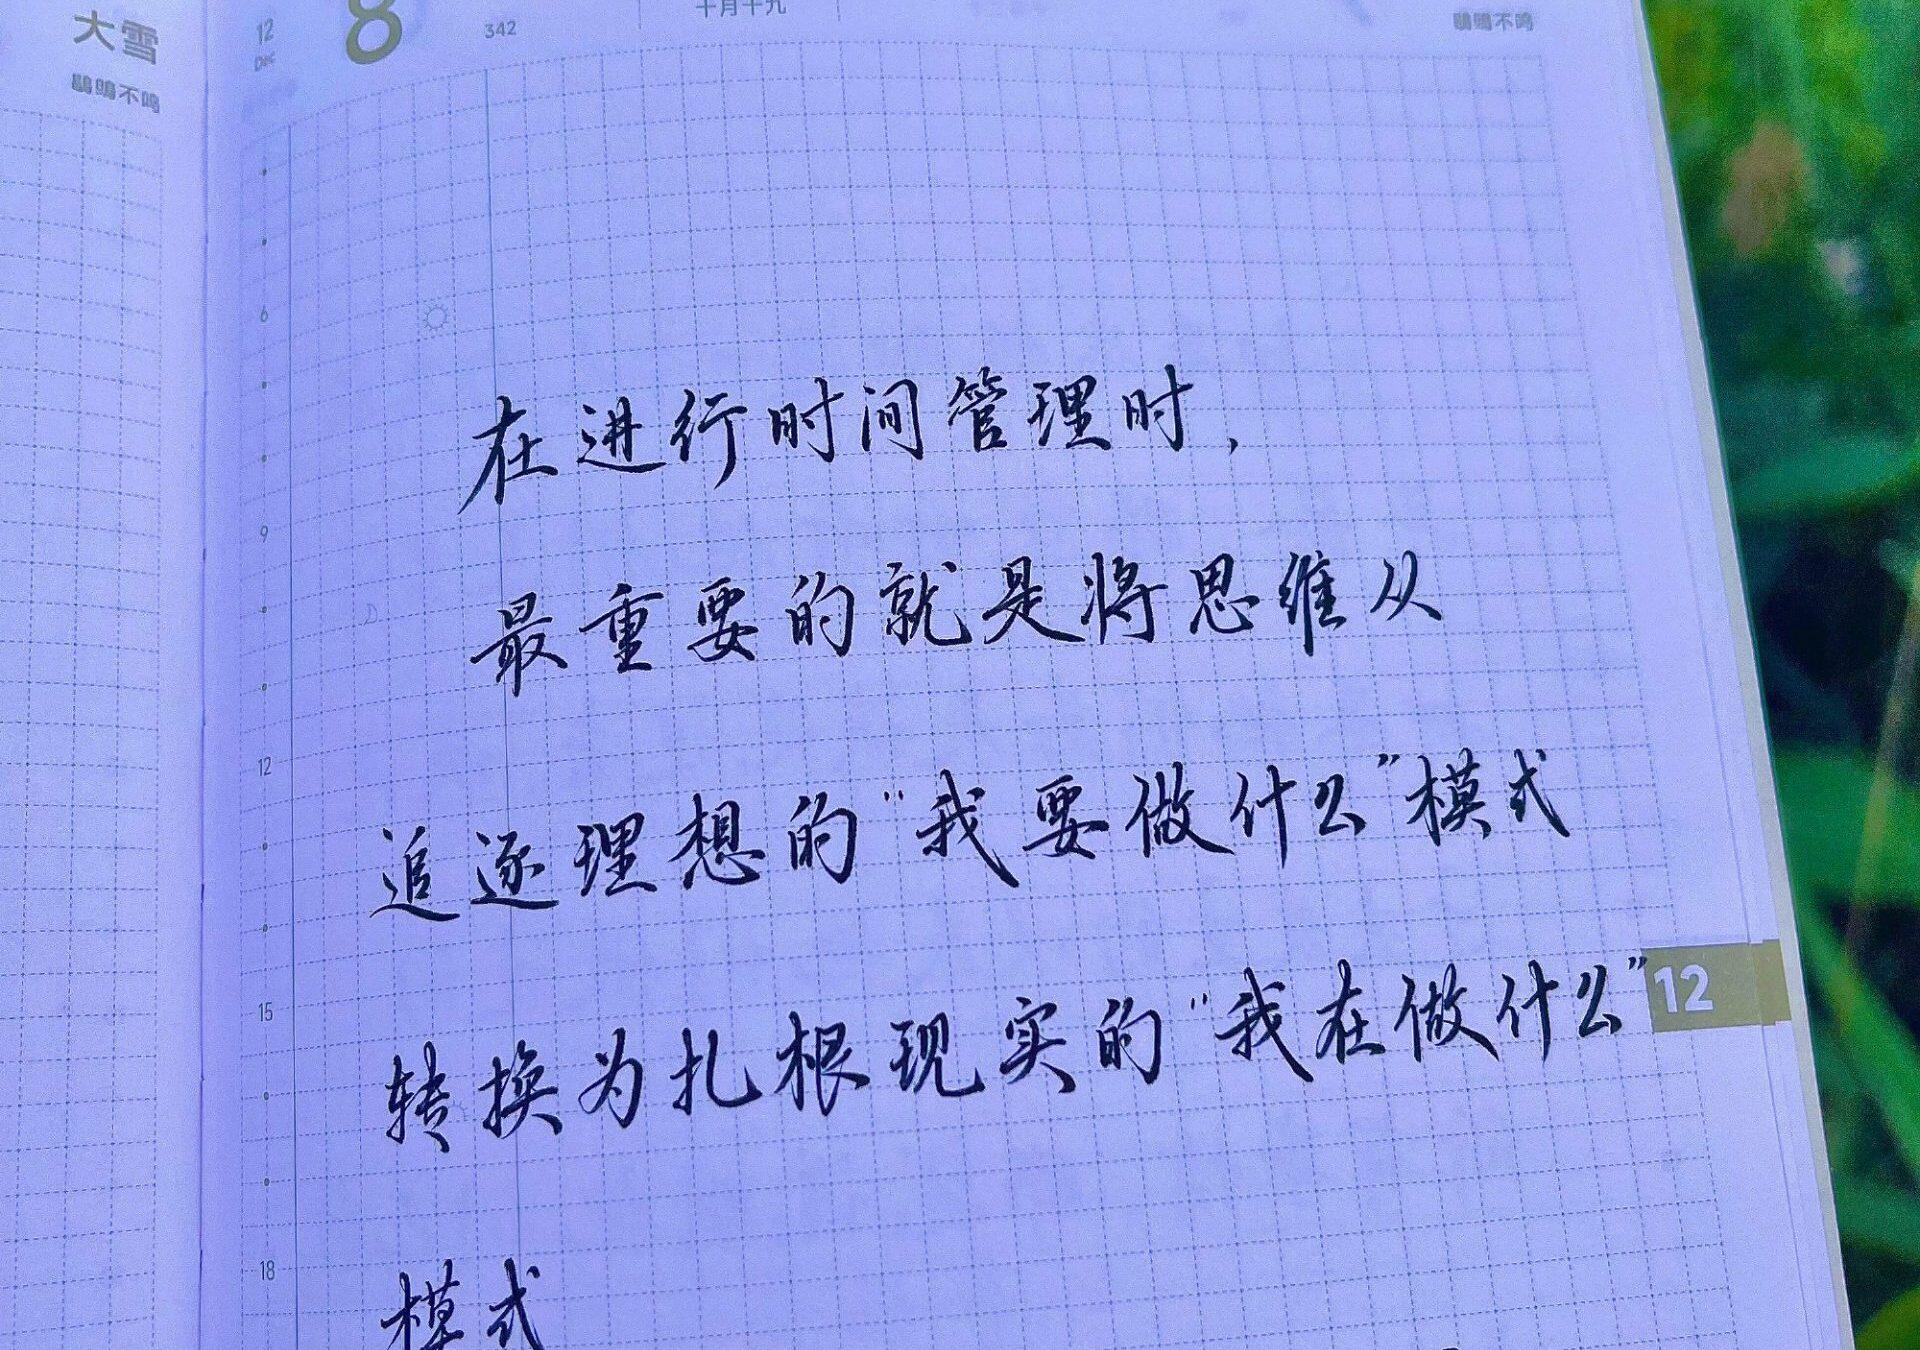 大雪
鹖鴠不鸣
12
Dec
8
342
十月十九
鹖鴠不鸣
6
9
12
15
18
在进行时间管理时,
最重要的就是将思维从
追逐理想的“我要做什么”模式
转换为扎根现实的“我在做什么”
模式
12